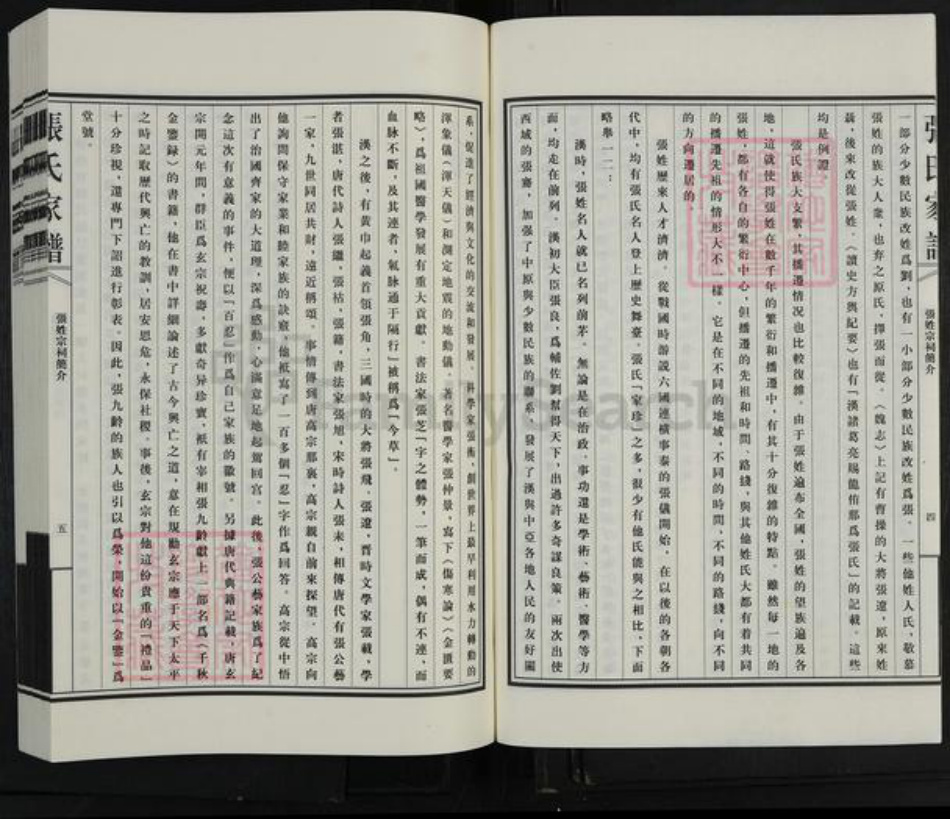 張氏家譜
張姓宗祠簡介
四
一部分少數民族改姓爲劉，也有一小部分少數民族改姓爲張。一些他姓人氏，敬慕
張姓的族大人衆，也弃之原氏，擇張而從。《魏志》上記有曹操的大將張遼，原來姓
聶，後來改從張姓。《讀史方輿紀要》也有「漢諸葛亮賜龍佑那爲張氏」的記載。這些
均是例證。
張氏族大支繁，其播遷情况也比較復雜。由于張姓遍布全國，張姓的望族遍及各
地，這就使得張姓在數千年的繁衍和播遷中，有其十分復雜的特點。雖然每一地的
張姓，都有各自的繁衍中心，但播遷的先祖和時間、路綫，與其他姓氏大都有着共同
的播遷先祖的情形大不一樣。它是在不同的地域，不同的時間，不同的路綫，向不同
的方向遷居的
張姓歷來人才濟濟。從戰國時游説六國連横事秦的張儀開始，在以後的各朝各
代中，均有張氏名人登上歷史舞臺。張氏「家珍」之多，很少有他氏能與之相比，下面
略舉一二：
漢時，張姓名人就已名列前茅。無論是在治政、事功還是學術、藝術、醫學等方
面，均走在前列。漢初大臣張良，爲輔佐劉幫得天下，出過許多奇謀良策。兩次出使
西域的張騫，加强了中原與少數民族的聯系，發展了漢與中亞各地人民的友好關
系，促進了經濟與文化的交流和發展。科學家張衡，創世界上最早利用水力轉動的
渾象儀（渾天儀）和測定地震的地動儀。著名醫學家張仲景，寫下《傷寒論》《金匱要
略》，爲祖國醫學發展有重大貢獻。書法家張芝「字之體勢，一筆而成，偶有不連，而
血脉不斷，及其連者，氣脉通于隔行」被稱爲「今草」。
漢之後，有黄巾起義首領張角，三國時的大將張飛、張遼，晋時文學家張載，學
者張湛，唐代詩人張繼，張枯，張籍，書法家張旭，宋時詩人張耒，相傳唐代有張公藝
一家，九世同居共財，遠近稱頌。事情傳到唐高宗那裏，高宗親自前來探望。高宗向
他詢問保守家業和睦家族的訣竅，他衹寫了一百多個「忍」字作爲回答。高宗從中悟
出了治國齊家的大道理，深爲感動，心滿意足地起駕回宫。此後，張公藝家族爲了紀
念這次有意義的事件，便以「百忍」作爲自己家族的徽號。另據唐代典籍記載，唐玄
宗開元年間，群臣爲玄宗祝壽，多獻奇异珍寶，衹有宰相張九齡獻上一部名爲《千秋
金鑒録》的書籍，他在書中詳細論述了古今興亡之道，意在規勸玄宗應于天下太平
之時記取歷代興亡的教訓，居安思危，永保社稷。事後，玄宗對他這份貴重的「禮品」
十分珍視，還專門下詔進行彰表。因此，張九齡的族人也引以爲榮，開始以「金鑒」爲
堂號。
張氏家譜
張姓宗祠簡介
五
FamilySearch